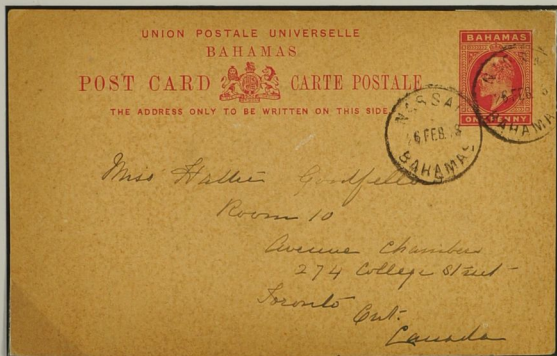 UNION POSTALE UNIVERSELLE
BAHAMAS
POST CARD CARTE POSTALE
THE ADDRESS ONLY TO BE WRITTEN ON THIS SIDE.
BAHAMAS
ONE PENNY
NASSAU
FEB
BAHAMAS
FEB
BAHAMAS
Miss Hattie Goodfello
Room 10
Avenue Chambers
274 College Street
Toronto
Ont.
Canada